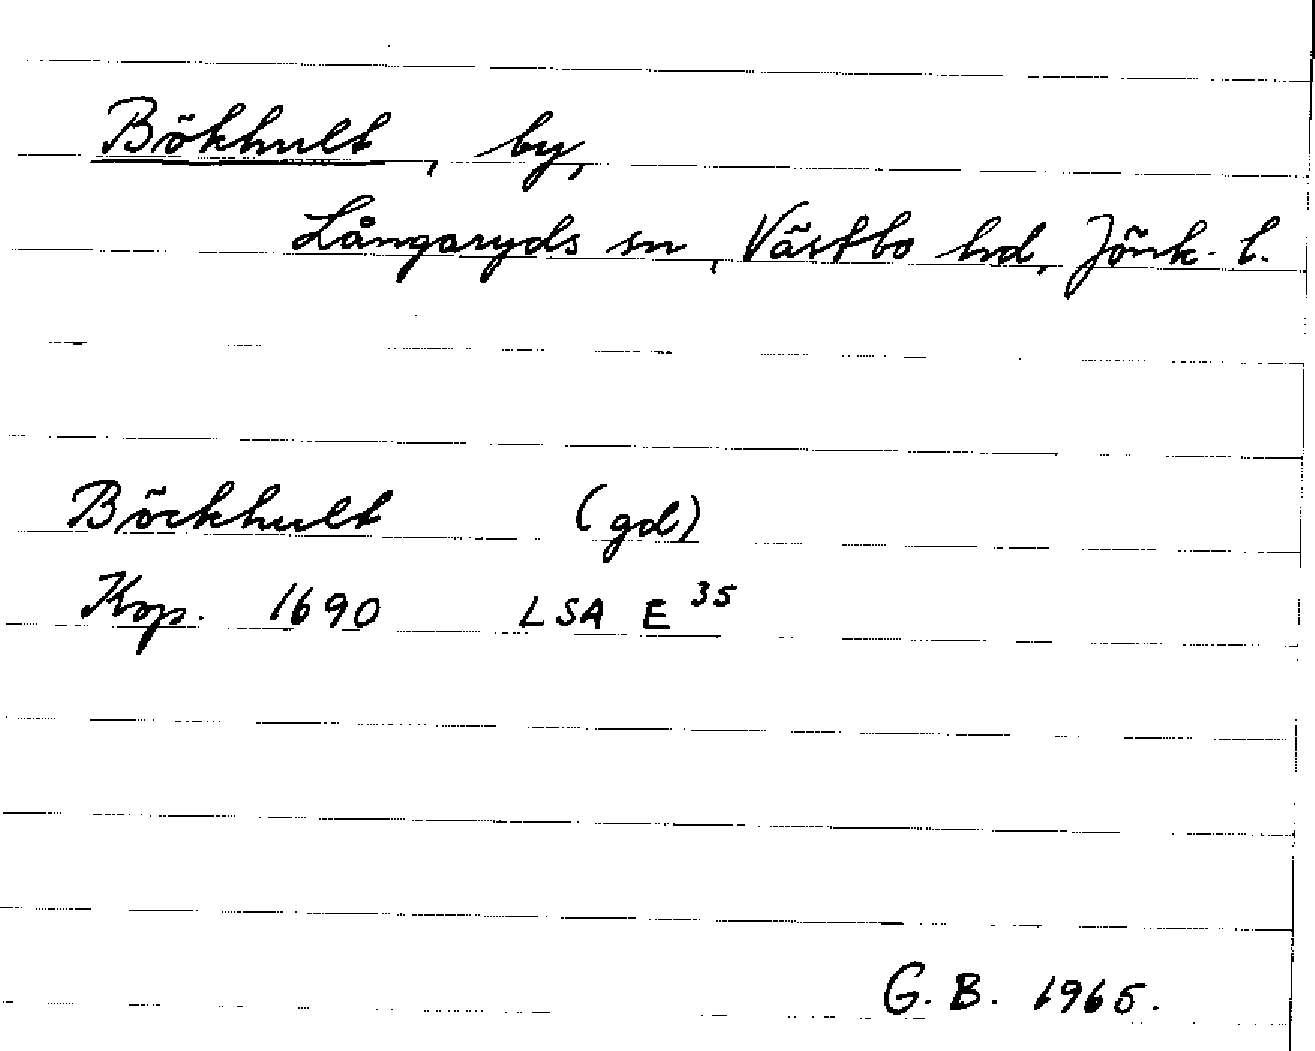 Bökhult, by,
Långaryds sn, Västbo hd, Jönk. l.
Böckhult (gd)
Kop. 1690 LSA E 35
G. B. 1965.